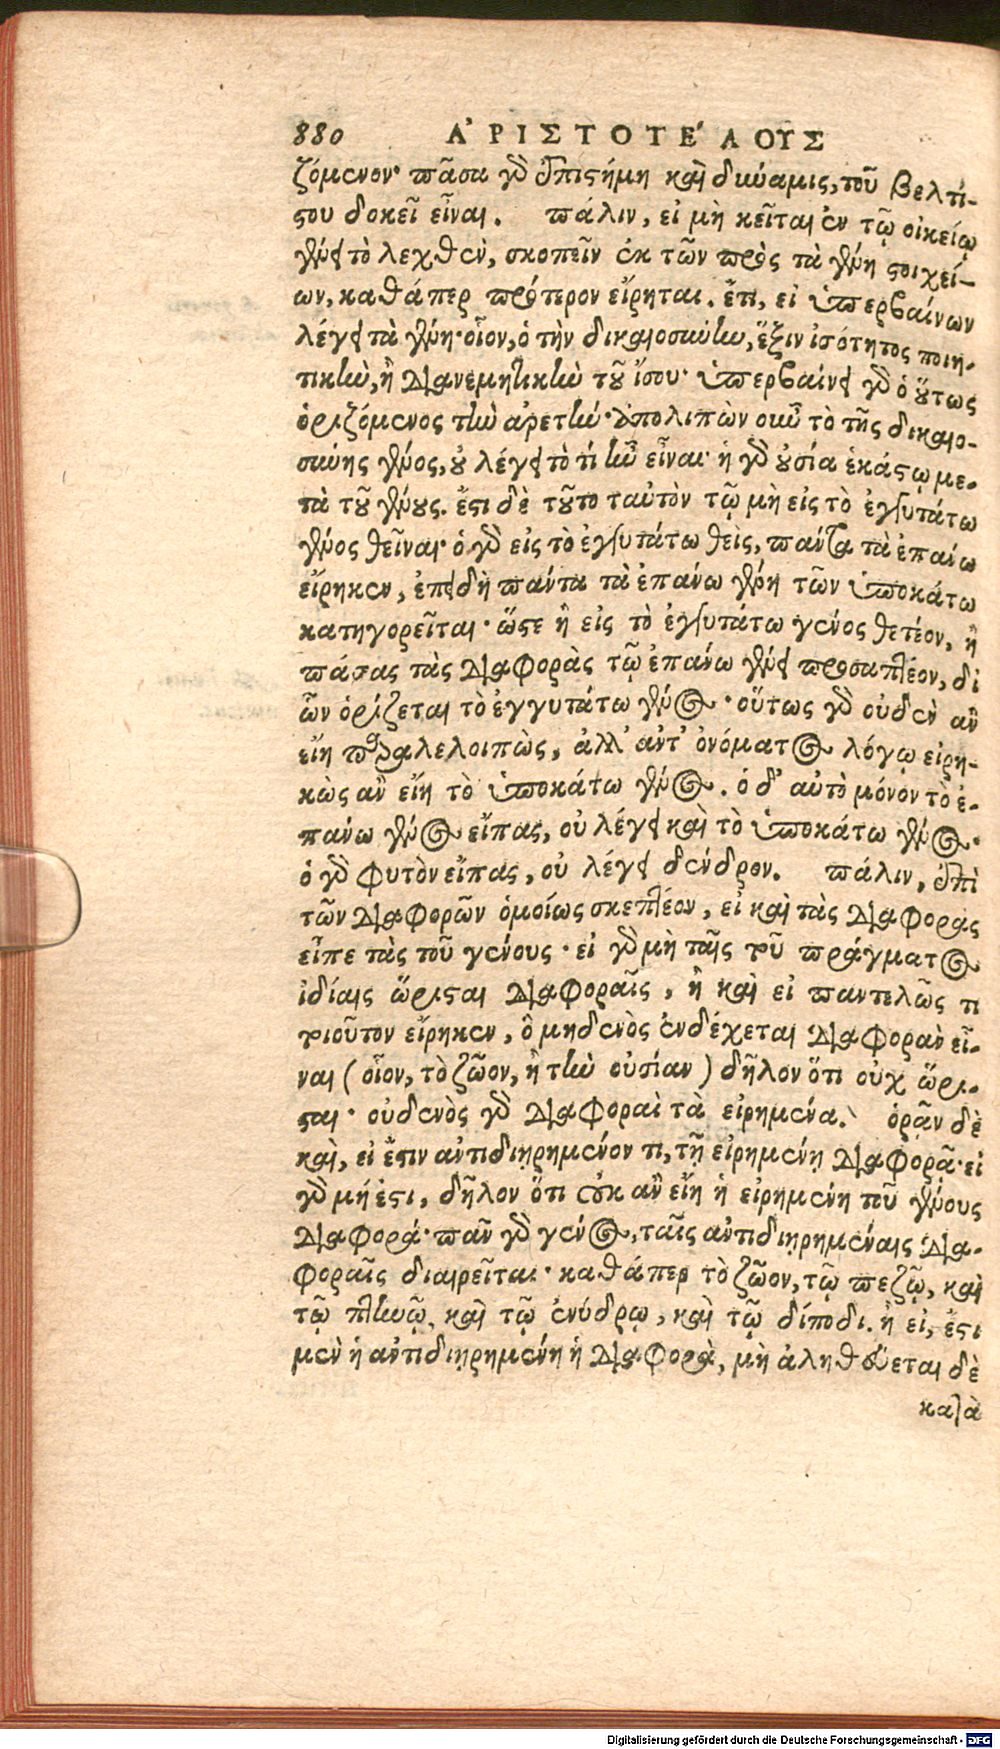 880 ΑʼΡΙΣΤΟΤΕʹΛΟΥΣ
ζόμενον· πᾶσα γὸ ἐπιστήμη καὶ δύναμις, τοῦ βελτί-
στου δοκεῖ εἶναι. πάλιν, εἰ μὴ κεῖται ἐν τῷ οἰκείῳ
γένει τὸ λεχθὲν, σκοπεῖν ἐκ τῶν πρὸς τὰ γένη στοιχεί-
ων, καθάπερ πρότερον εἴρηται. ἔτι, εἰ ὑπερβαίνων
λέγει τὰ γένη· οἷον, ὁ τὴν δικαιοσύνην, ἕξιν ἰσότητος ποιη-
τικὴν, ἢ διανεμητικὴν τοῦ ἴσου· ὑπερβαίνει γὸ ὁ οὕτως
ὁριζόμενος τὴν ἀρετήν· ἀπολιπὼν οὖν τὸ τῆς δικαιο-
σύνης γένος, οὐ λέγει τὸ τί ἦν εἶναι· ἡ γὸ οὐσία ἑκάστῳ με-
τὰ τοῦ γένους. ἔστι δὲ τοῦτο ταὐτὸν τῷ μὴ εἰς τὸ ἐγγυτάτω
γένος θεῖναι· ὁ γὸ εἰς τὸ ἐγγυτάτω θεὶς, πάντα τὰ ἐπάνω
εἴρηκεν, ἐπειδὴ πάντα τὰ ἐπάνω γένη τῶν ὑποκάτω
κατηγορεῖται· ὥστε ἢ εἰς τὸ ἐγγυτάτω γένος θετέον, ἢ
πάσας τὰς διαφορὰς τῷ ἐπάνω γένει προσαπτέον, δι
ὧν ὁρίζεται τὸ ἐγγυτάτω γένος· οὕτως γὸ οὐδὲν ἂν
εἴη παραλελοιπὼς, ἀλλ' ἀντ' ὀνόματος λόγῳ εἰρη-
κὼς ἂν εἴη τὸ ὑποκάτω γένος. ὁ δ' αὐτὸ μόνον τὸ ἐ-
πάνω γένος εἴπας, οὐ λέγει καὶ τὸ ὑποκάτω γένος·
ὁ γὸ φυτὸν εἴπας, οὐ λέγει δένδρον. πάλιν, ἐπὶ
τῶν διαφορῶν ὁμοίως σκεπτέον, εἰ καὶ τὰς διαφορὰς
εἶπε τὰς τοῦ γένους· εἰ γὸ μὴ ταῖς τοῦ πράγματος
ἰδίαις ὥρισται διαφοραῖς, ἢ καὶ εἰ παντελῶς τι
τοιοῦτον εἴρηκεν, ὃ μηδενὸς ἐνδέχεται διαφορὰν εἶ-
ναι (οἷον, τὸ ζῶον, ἢ τὴν οὐσίαν) δῆλον ὅτι οὐχ ὥρι-
σται· οὐδενὸς γὸ διαφοραὶ τὰ εἰρημένα. ὁρᾷν δὲ
καὶ, εἰ ἔστιν ἀντιδιῃρημένον τι, τῇ εἰρημένῃ διαφορᾷ· εἰ
γὸ μή ἐστι, δῆλον ὅτι οὐκ ἂν εἴη ἡ εἰρημένη τοῦ γένους
διαφορά· πᾶν γὸ γένος, ταῖς ἀντιδιῃρημέναις δια-
φοραῖς διαιρεῖται· καθάπερ τὸ ζῶον, τῷ πεζῷ, καὶ
τῷ πτηνῷ, καὶ τῷ ἐνύδρῳ, καὶ τῷ δίποδι. ἢ εἰ, ἔστι
μὲν ἡ ἀντιδιῃρημένη ἡ διαφορὰ, μὴ ἀληθεύεται δὲ
κατὰ
Digitalisierung gefördert durch die Deutsche Forschungsgemeinschaft - DFG